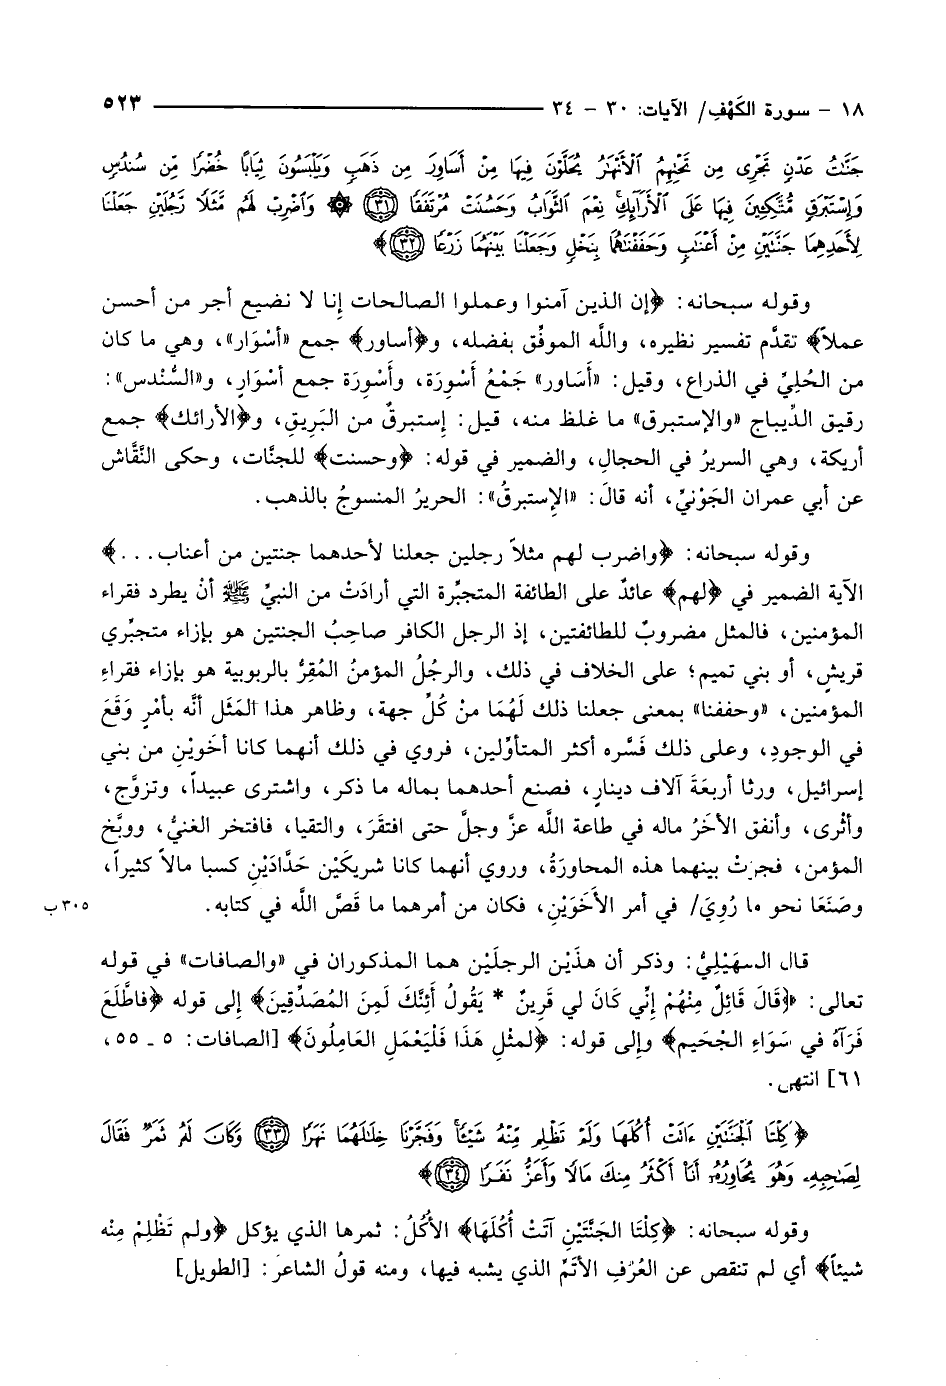 ١٨ - سورة الكَهْفِ/ الآيات: ٣٠ - ٣٤ ٥٢٣
جَنَّٰتُ عَدْنٍ تَجْرِى مِن تَحْتِهِمُ ٱلْأَنْهَٰرُ يُحَلَّوْنَ فِيهَا مِنْ أَسَاوِرَ مِن ذَهَبٍ وَيَلْبَسُونَ ثِيَابًا خُضْرًا مِّن سُندُسٍ
وَإِسْتَبْرَقٍ مُّتَّكِـِٔينَ فِيهَا عَلَى ٱلْأَرَآئِكِ نِعْمَ ٱلثَّوَابُ وَحَسُنَتْ مُرْتَفَقًا (٣١) ۞ وَٱضْرِبْ لَهُم مَّثَلًا رَّجُلَيْنِ جَعَلْنَا
لِأَحَدِهِمَا جَنَّتَيْنِ مِنْ أَعْنَٰبٍ وَحَفَفْنَٰهُمَا بِنَخْلٍ وَجَعَلْنَا بَيْنَهُمَا زَرْعًا (٣٢)﴾
وقوله سبحانه: ﴿إن الذين آمنوا وعملوا الصالحات إنا لا نضيع أجر من أحسن
عملاً﴾ تقدَّم تفسير نظيره، واللَّه الموفِّق بفضله، و﴿أساور﴾ جمع «أسْوَار»، وهي ما كان
من الحُلِيِّ في الذراع، وقيل: «أَسَاور» جَمْعُ أَسْوِرَة، وأَسْوِرَة جمع أسْوَارٍ، و«السُّنْدس»:
رقيق الدِّيباج «والإستبرق» ما غلظ منه، قيل: إستبرقٌ من البَرِيقِ، و﴿الأرائك﴾ جمع
أريكة، وهي السريرُ في الحجالِ، والضمير في قوله: ﴿وحسنت﴾ للجنَّات، وحكى النَّقَّاش
عن أبي عمران الجَوْنيِّ، أنه قالَ: «الإِستبرقُ»: الحريرُ المنسوجُ بالذهب.
وقوله سبحانه: ﴿واضرب لهم مثلاً رجلين جعلنا لأحدهما جنتين من أعناب...﴾
الآية الضمير في ﴿لهم﴾ عائدٌ على الطائفة المتجبِّرة التي أرادَتْ من النبيِّ ﷺ أنْ يطرد فقراء
المؤمنين، فالمثل مضروبٌ للطائفتين، إذ الرجل الكافر صاحِبُ الجنتين هو بإزاء متجبِّري
قريشٍ، أو بني تميم؛ على الخلاف في ذلك، والرجُلُ المؤمنُ المُقِرُّ بالربوبية هو بإزاء فقراءِ
المؤمنين، «وحففنا» بمعنى جعلنا ذلك لَهُمَا منْ كُلِّ جهة، وظاهر هذا المَثَل أنَّه بأمْرٍ وَقَعَ
في الوجودِ، وعلى ذلك فَسَّره أكثر المتأوِّلين، فروي في ذلك أنهما كانا أخَويْنِ من بني
إسرائيل، ورثا أربعَةَ آلاف دينارٍ، فصنع أحدهما بماله ما ذكر، واشترى عبيداً، وتزوَّج،
وأثْرى، وأنفق الآخَرُ ماله في طاعة اللَّه عزَّ وجلَّ حتى افتقَرَ، والتقيا، فافتخر الغنيُّ، ووبَّخ
المؤمن، فجرتْ بينهما هذه المحاورَةُ، وروي أنهما كانا شريكَيْن حَدَّادَيْنِ كسبا مالاً كثيراً،
وصَنَعَا نحو ما رُوِيَ/ في أمر الأَخَوَيْنِ، فكان من أمرهما ما قَصَّ اللَّه في كتابه. ٣٠٥ ب
قال السهَيْلِيُّ: وذكر أن هذَيْن الرجلَيْن هما المذكوران في «والصافات» في قوله
تعالى: ﴿قَالَ قَائِلٌ مِنْهُمْ إِنِّي كَانَ لي قَرِينٌ * يَقُولُ أَئِنَّكَ لَمِنَ المُصَدِّقِينَ﴾ إلى قوله ﴿فاطَّلَعَ
فَرَآهُ في سَوَاءِ الجَحيم﴾ وإلى قوله: ﴿لمثْلِ هَذَا فَلْيَعْمَلِ العَامِلُونَ﴾ [الصافات: ٥ ـ ٥٥،
٦١] انتهى.
﴿كِلْتَا ٱلْجَنَّتَيْنِ ءَاتَتْ أُكُلَهَا وَلَمْ تَظْلِم مِّنْهُ شَيْـًٔا وَفَجَّرْنَا خِلَٰلَهُمَا نَهَرًا (٣٣) وَكَانَ لَهُ ثَمَرٌ فَقَالَ
لِصَٰحِبِهِۦ وَهُوَ يُحَاوِرُهُۥ أَنَا۠ أَكْثَرُ مِنكَ مَالًا وَأَعَزُّ نَفَرًا (٣٤)﴾
وقوله سبحانه: ﴿كِلْتَا الجَنَّتَيْنِ آتَتْ أُكُلَهَا﴾ الأُكُلُ: ثمرها الذي يؤكل ﴿ولم تَظْلِمْ مِنْه
شيئاً﴾ أي لم تنقص عن العُرْفِ الأتمِّ الذي يشبه فيها، ومنه قولُ الشاعرَ: [الطويل]